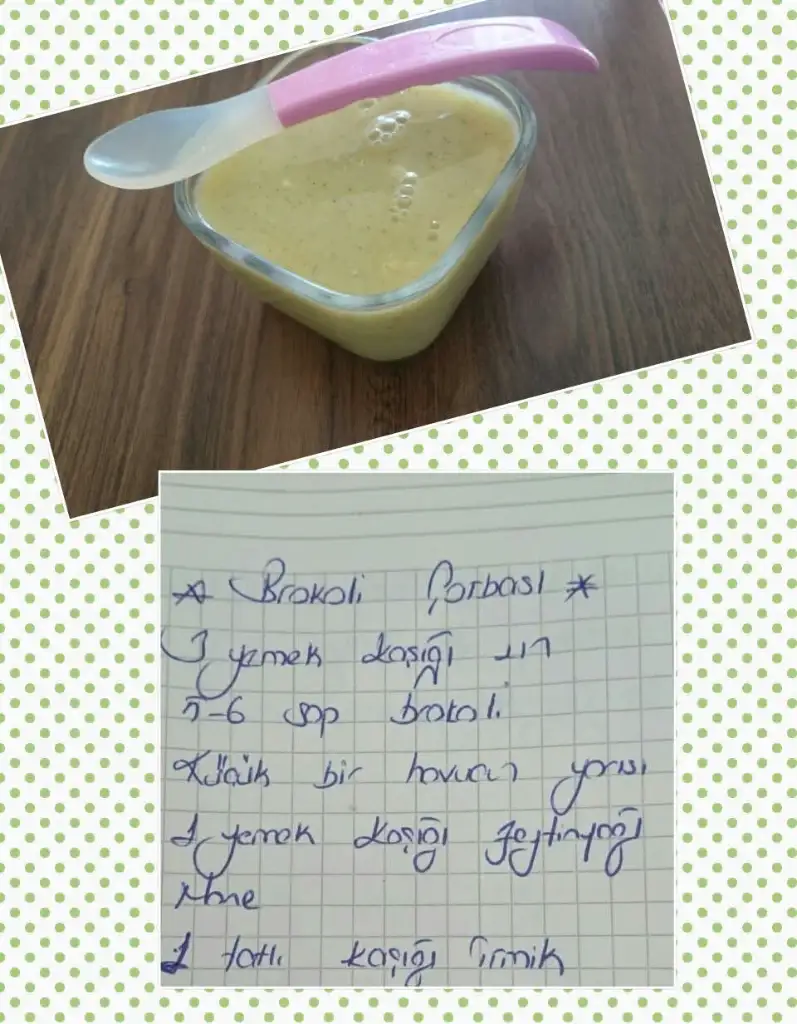 * Brokoli Çorbası *
1 yemek kaşığı un
5-6 sap brokoli
Küçük bir havucun yarısı
1 yemek kaşığı zeytinyağı
Nane
1 tatlı kaşığı irmik